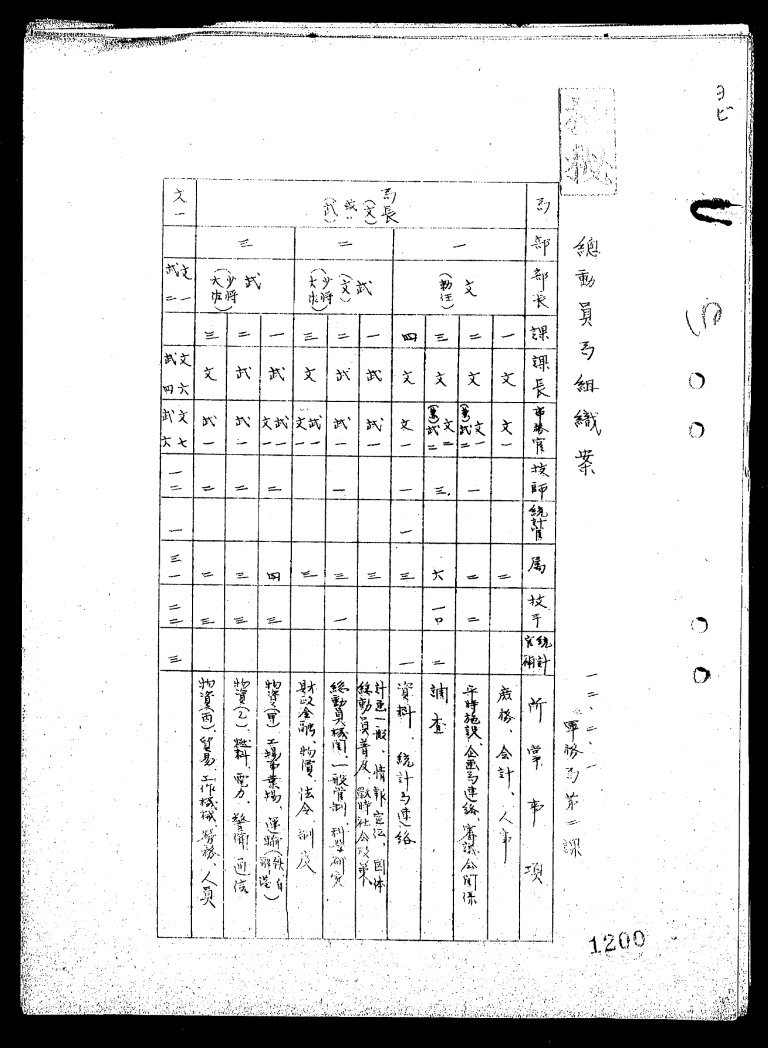 ヨビ
極
秘
總動員局組織案
一二、二、一
軍務局第二課
局 部 部長 課 課長 事務官 技師 統計官 属 技手 統計官補 所掌事項
局長(文或ハ武) 一 文(勅任) 一 文 文一 二 庶務、会計、人事
二 文 文一(兼)武二 一 二 二 平時施設、企画局連絡、審議会関係
三 文 文二(兼)武二 三 六 一〇 二 調査
四 文 文一 一 一 三 一 資料、統計局連絡
二 武(文)(少将大佐) 一 武 武一 三 計画一般、情報宣伝、団体
総動員普及、戦時社会政策
二 武 武一 一 三 一 総動員機関、一般管制、科学研究
三 文 武一文一 三 財政金融、物價、法令、制度
三 武(少将大佐) 一 武 武一文一 二 四 三 物資(甲)工場事業場、運輸(鉄、自、船、港)
二 武 武一 二 三 三 物資(乙)、燃料、電力、警備、通信
三 文 武一 二 三 三 物資(丙)貿易、工作機械、労務、人員
文一 文一武二 文六武四 文七武六 一二 一 三一 二二 三
1200